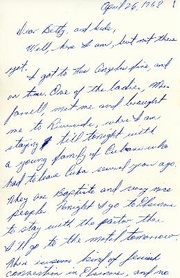 April 26, 1968 1
Dear Betty, and kids,
Well, here I am, but not there
yet. I got to Los Angeles fine, and
on time. One of the ladies, Mrs.
Farrell, met me and brought
me to Riverside, where I am
staying till tonight with
a young family of Cubans who
had to leave Cuba several years ago.
They are Baptists and very nice
people. Tonight I go to
to stay with the pastor - then
I'll go to the motel tomorrow.
There is some kind of
convention in and no